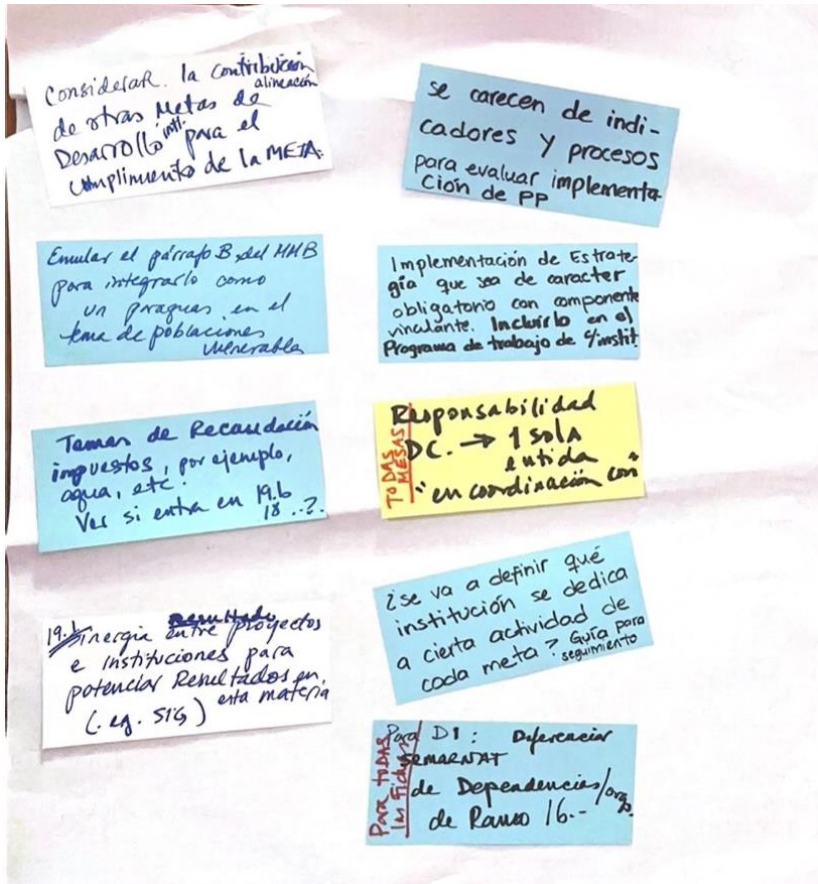 Considerar la contribución
alineación
de otras Metas de
Desarrollo intl. para el
cumplimiento de la META.
Emular el párrafo B del MMB
para integrarlo como
un paraguas en el
tema de poblaciones
vulnerables
Temas de Recaudación
impuestos, por ejemplo,
agua, etc.
Ver si entra en 19.b
18...?
resultado
19.b Sinergia entre proyectos
e instituciones para
potenciar Resultados en
(. eg. SIG) esta materia
se carecen de indi-
cadores y procesos
para evaluar implementa-
ción de PP
Implementación de Estrate-
gía que sea de caracter
obligatorio con componente
vinculante. Incluírlo en el
Programa de trabajo de c/instit
TODAS
MESAS
Responsabilidad
DC. → 1 sola
entida
"en coordinación con"
¿se va a definir qué
institución se dedica
a cierta actividad de
cada meta? Guía para
seguimiento
Para todas
las Fichas
Para D1: Diferenciar
SEMARNAT
de Dependencies/org
de Ramo 16.-